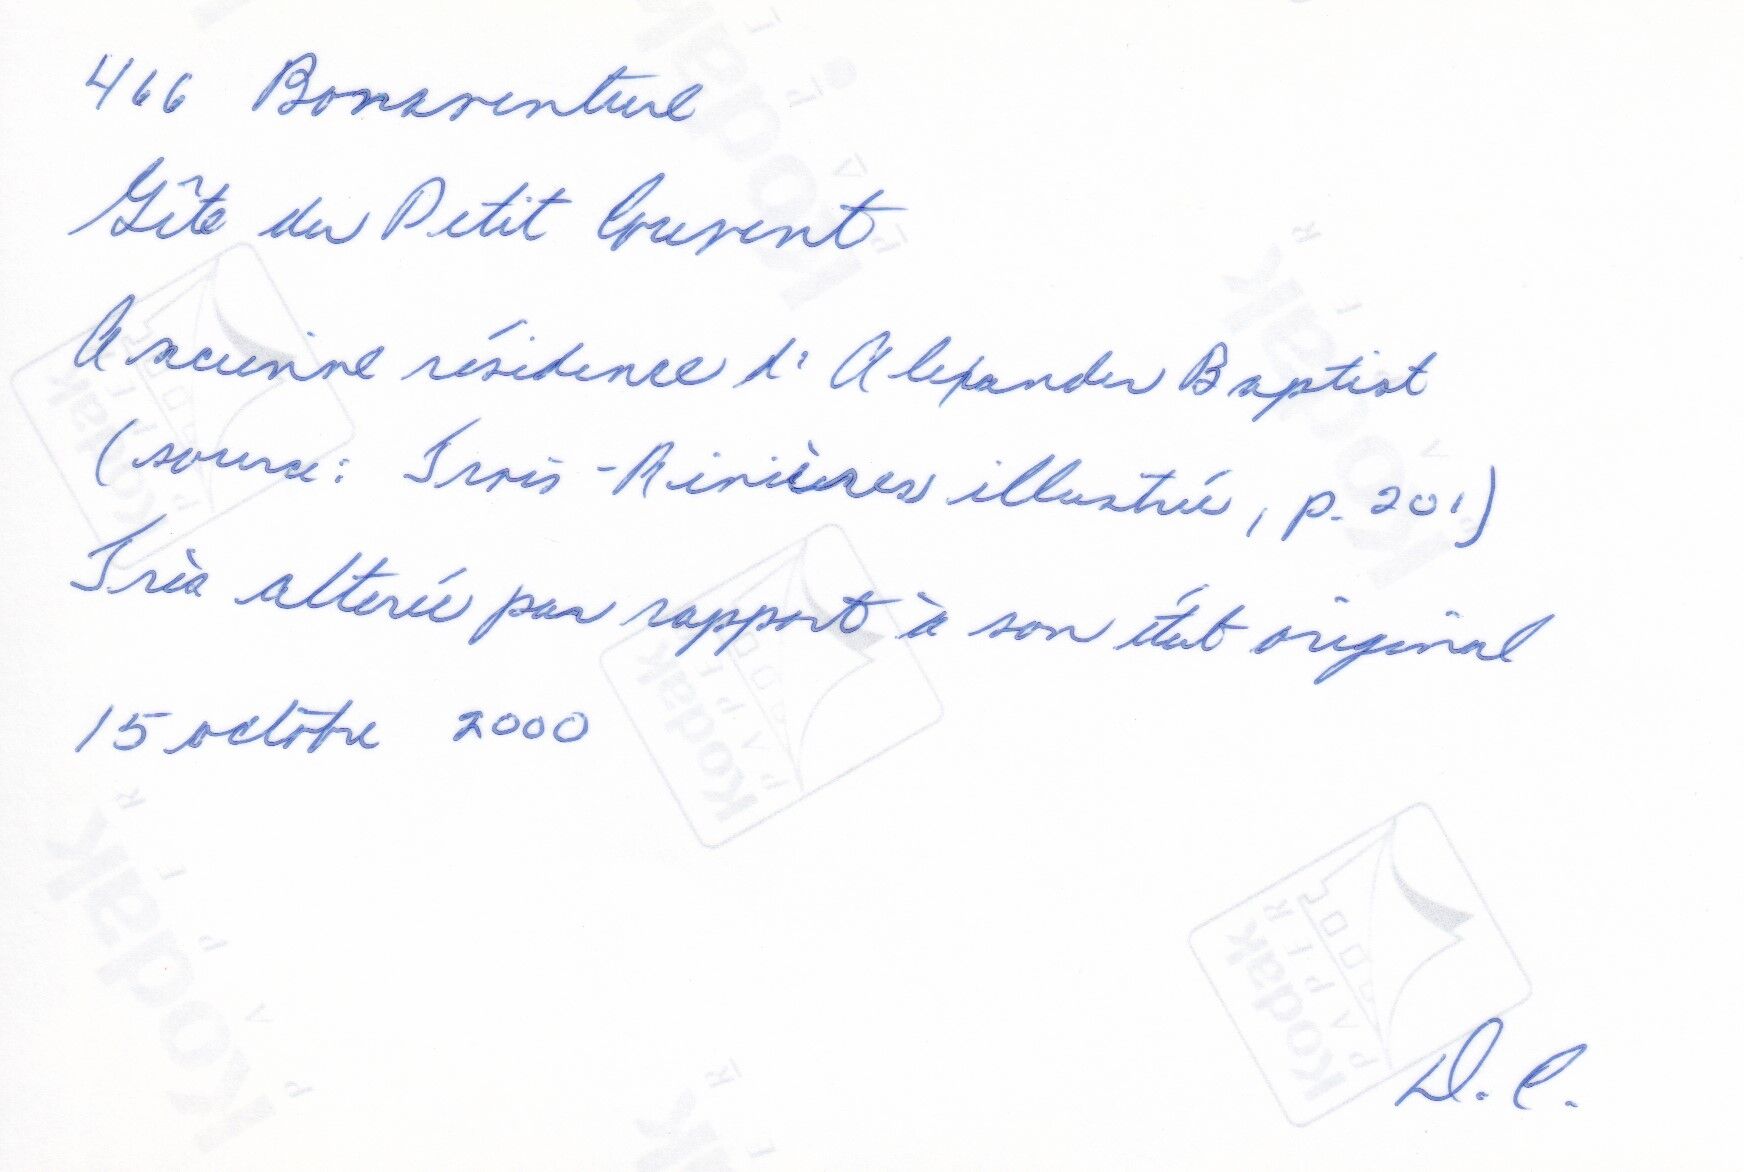 466 Bonaventure
Gîte du Petit Couvent
Ancienne résidence d'Alexander Baptist
(source: Trois-Rivières illustrée, p. 201)
Très altérée par rapport à son état original
15 octobre 2000
D.C.
Kodak
PAPER
Kodak
PAPER
Kodak
PAPER